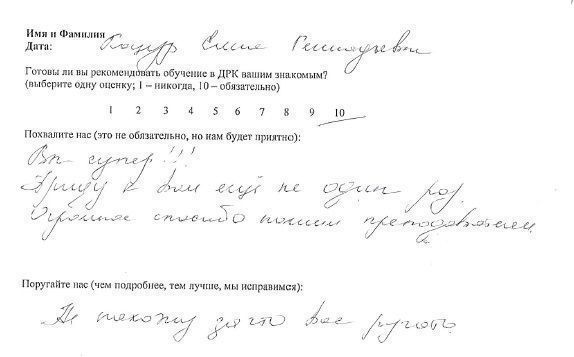 Имя и Фамилия
Дата: Кощур Елена Геннадьевна
Готовы ли вы рекомендовать обучение в ДРК вашим знакомым?
(выберите одну оценку; 1 – никогда, 10 – обязательно)
1 2 3 4 5 6 7 8 9 10
Похвалите нас (это не обязательно, но нам будет приятно):
Вы супер!!!
Приду к вам ещё не один раз.
Огромное спасибо нашим преподавателям.
Поругайте нас (чем подробнее, тем лучше, мы исправимся):
Не нахожу за что вас ругать.